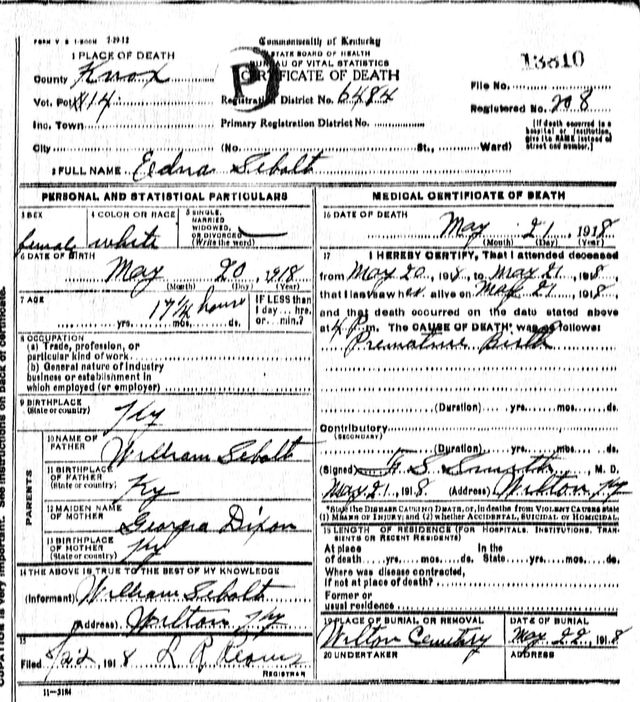 FORM V S 1-500M 7-29-12
Commonwealth of Kentucky
STATE BOARD OF HEALTH
BUREAU OF VITAL STATISTICS
CERTIFICATE OF DEATH
13810
1 PLACE OF DEATH
County Knox
Vot. Pct. 814
Inc. Town
City
Registration District No. 6484
Primary Registration District No.
(No. St., Ward)
File No.
Registered No. 208
[If death occurred in a
hospital or institution,
give its NAME instead of
street and number.]
2 FULL NAME Eedna Sebolt
PERSONAL AND STATISTICAL PARTICULARS
3 SEX
female
4 COLOR OR RACE
white
5 SINGLE,
MARRIED
WIDOWED,
OR DIVORCED
(Write the word)
6 DATE OF BIRTH
May 20 1918
(Month) (Day) (Year)
7 AGE
17 1/2 hours
yrs. mos. ds.
IF LESS than
1 day ... hrs.
or ... min.?
8 OCCUPATION
(a) Trade, profession, or
particular kind of work
(b) General nature of industry
business or establishment in
which employed (or employer)
9 BIRTHPLACE
(State or country)
Ky
PARENTS
10 NAME OF
FATHER
William Sebolt
11 BIRTHPLACE
OF FATHER
(State or country)
Ky
12 MAIDEN NAME
OF MOTHER
Georgia Dixon
13 BIRTHPLACE
OF MOTHER
(State or country)
Ky
14 THE ABOVE IS TRUE TO THE BEST OF MY KNOWLEDGE
(Informant) William Sebolt
(Address) Wilton Ky
15
Filed 5/22, 1918
REGISTRAR
11-3184
MEDICAL CERTIFICATE OF DEATH
16 DATE OF DEATH
May 21, 1918
(Month) (Day) (Year)
17 I HEREBY CERTIFY, That I attended deceased
from May 20, 1918, to May 21, 1918,
that I last saw her alive on May 21, 1918
and that death occurred on the date stated above
at 4 P m. The CAUSE OF DEATH* was as follows:
Premature Birth
(Duration) yrs. mos. ds.
Contributory
(SECONDARY)
(Duration) yrs. mos. ds.
(Signed) M. D.
May 21, 1918 (Address) Wilton Ky
*State the DISEASE CAUSING DEATH, or, in deaths from VIOLENT CAUSES state
(1) MEANS OF INJURY; and (2) whether ACCIDENTAL, SUICIDAL or HOMICIDAL.
18 LENGTH OF RESIDENCE (FOR HOSPITALS, INSTITUTIONS, TRAN-
SIENTS OR RECENT RESIDENTS)
At place In the
of death yrs. mos. ds. State yrs. mos. ds.
Where was disease contracted,
if not at place of death?
Former or
usual residence
19 PLACE OF BURIAL OR REMOVAL
Wilton Cemetery
DATE OF BURIAL
May 22 1918
20 UNDERTAKER
ADDRESS